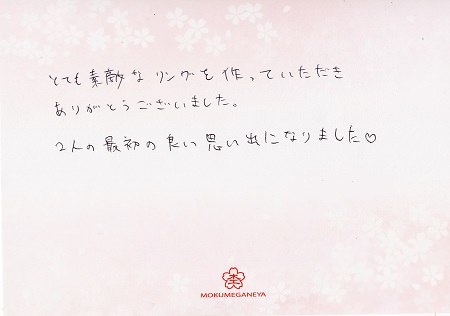 とても素敵なリングを作っていただき
ありがとうございました。
2人の最初の良い思い出になりました♡
MOKUMEGANEYA